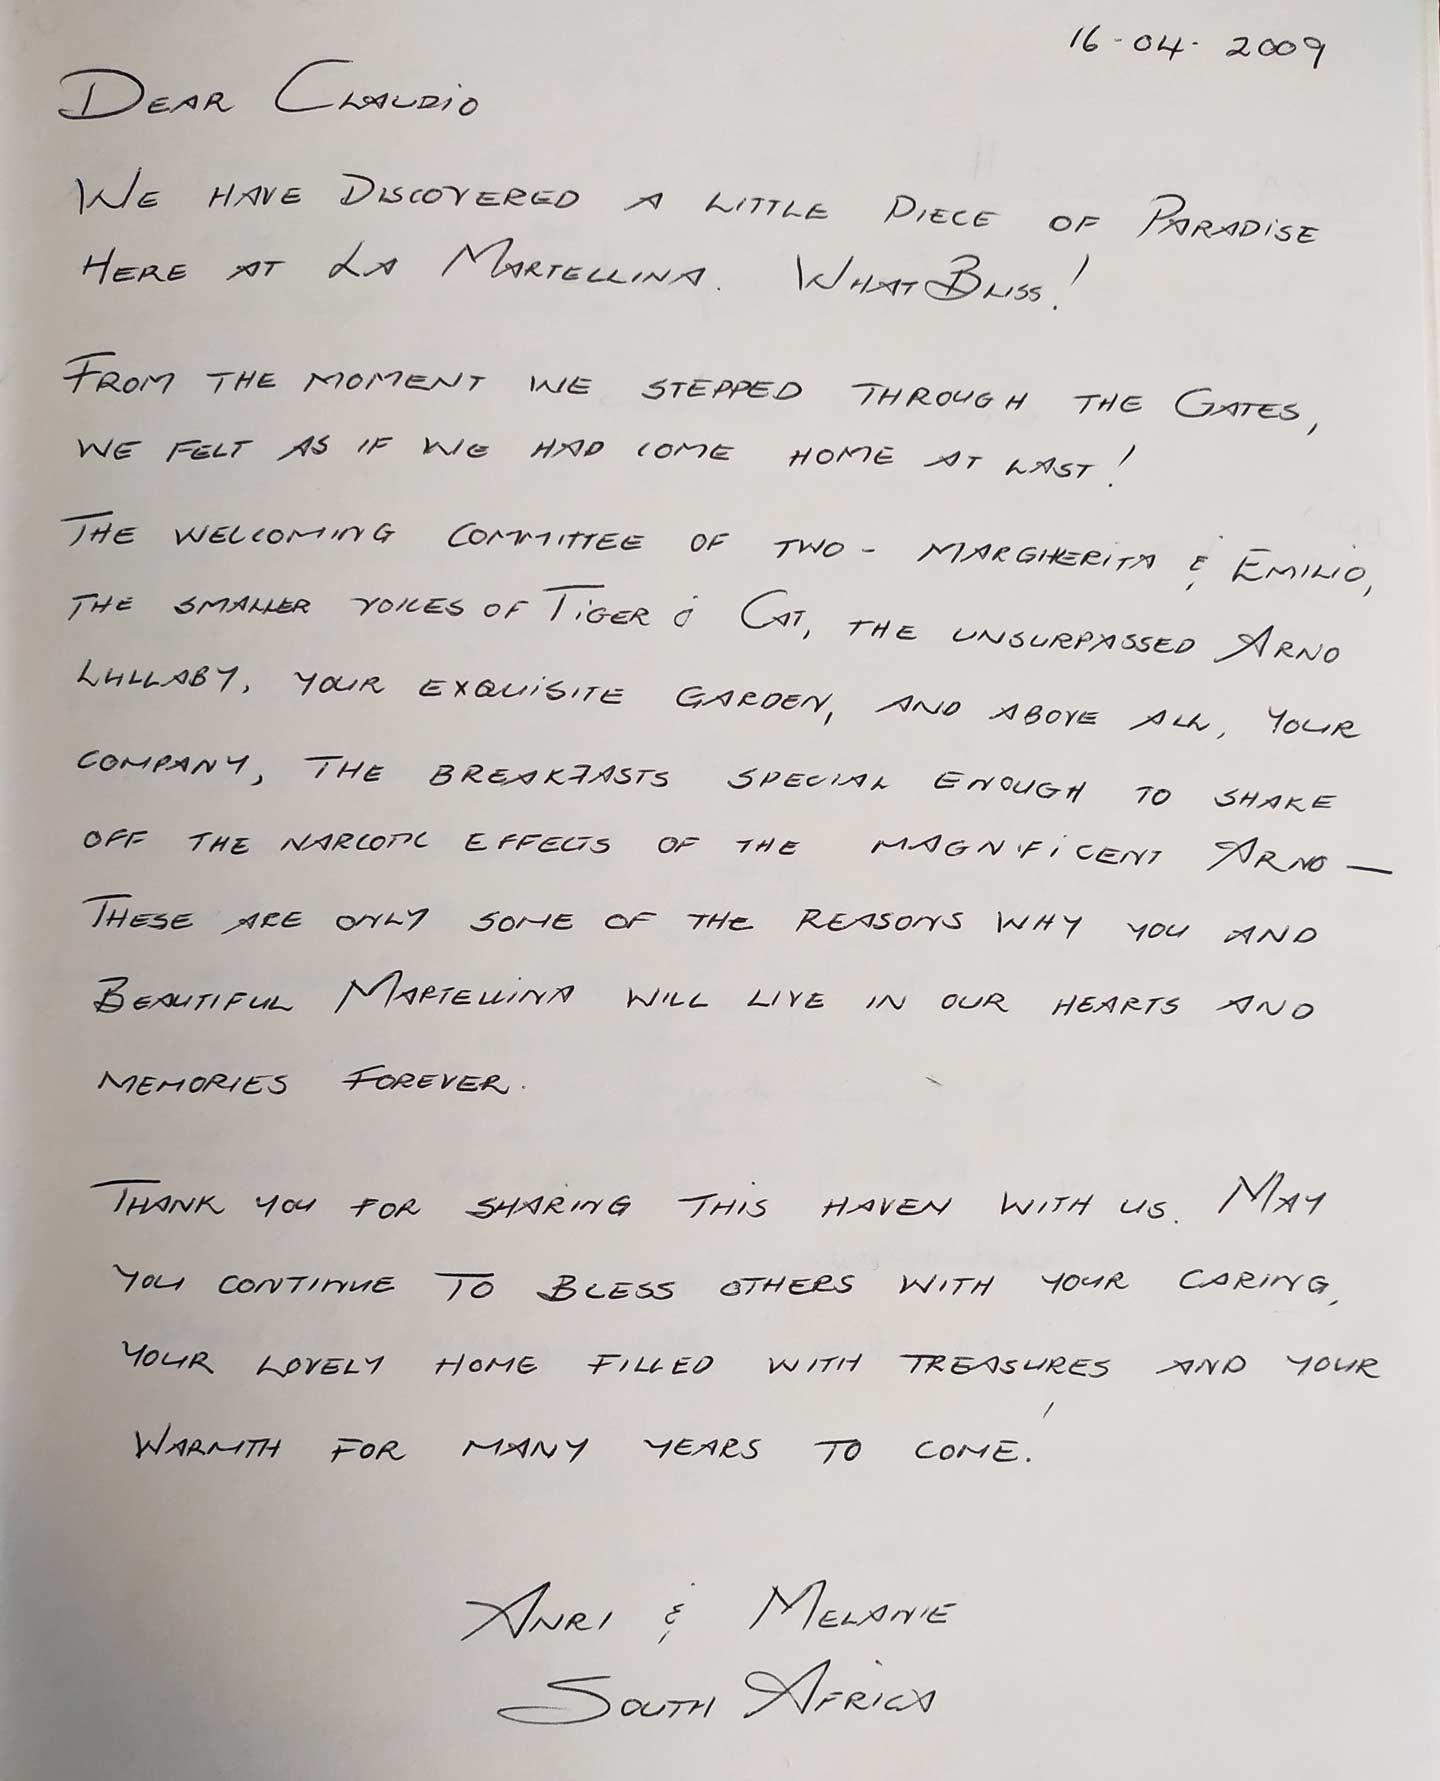 16-04-2009
DEAR CLAUDIO
WE HAVE DISCOVERED A LITTLE PIECE OF PARADISE
HERE AT LA MARTELLINA. WHAT BLISS!
FROM THE MOMENT WE STEPPED THROUGH THE GATES,
WE FELT AS IF WE HAD COME HOME AT LAST!
THE WELCOMING COMMITTEE OF TWO - MARGHERITA & EMILIO,
THE SMALLER VOICES OF TIGER & CAT, THE UNSURPASSED ARNO
LULLABY, YOUR EXQUISITE GARDEN, AND ABOVE ALL, YOUR
COMPANY, THE BREAKFASTS SPECIAL ENOUGH TO SHAKE
OFF THE NARCOTIC EFFECTS OF THE MAGNIFICENT ARNO —
THESE ARE ONLY SOME OF THE REASONS WHY YOU AND
BEAUTIFUL MARTELLINA WILL LIVE IN OUR HEARTS AND
MEMORIES FOREVER.
THANK YOU FOR SHARING THIS HAVEN WITH US. MAY
YOU CONTINUE TO BLESS OTHERS WITH YOUR CARING,
YOUR LOVELY HOME FILLED WITH TREASURES AND YOUR
WARMTH FOR MANY YEARS TO COME!
ANRI & MELANIE
SOUTH AFRICA